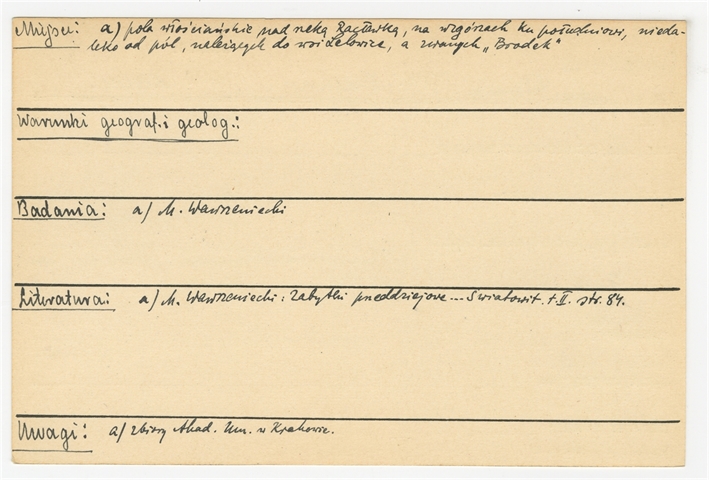 Miejsce: a) pola włościańskie nad rzeką Racławką, na wzgórzach ku południowi, nieda-
leko od pól, należących do wsi Lelowice, a zwanych „Brodek"
Warunki geograf. i geolog.:
Badania: a) M. Wawrzeniecki
Literatura: a) M. Wawrzeniecki: Zabytki przeddziejowe... Światowit. t II. str. 84.
Uwagi: a) zbiory Akad. Um. w Krakowie.